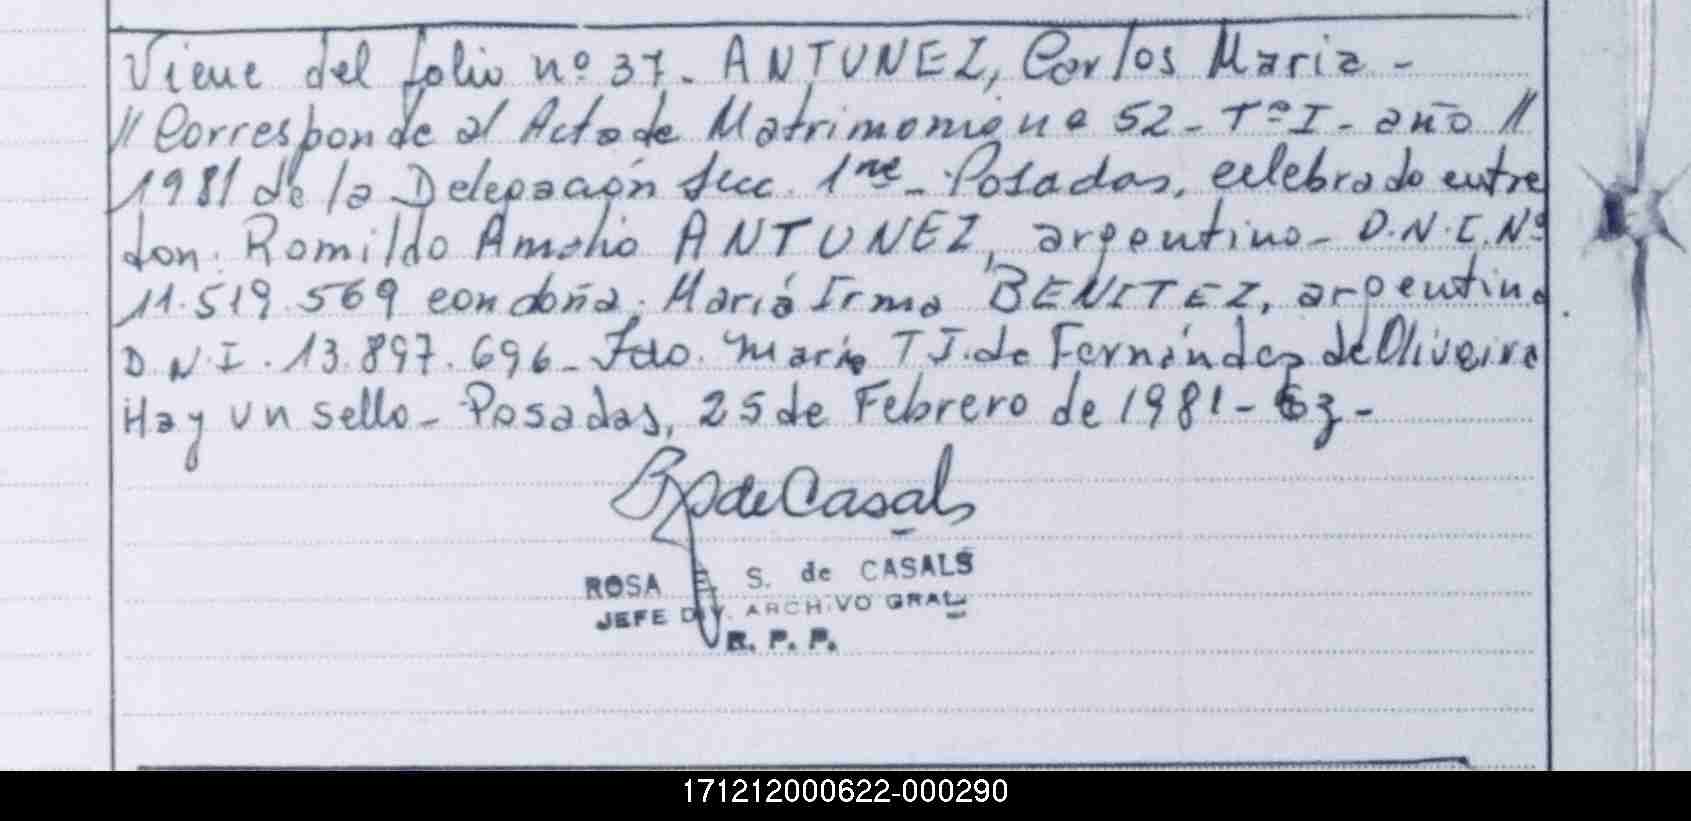 Viene del folio nº 37. ANTUNEZ, Carlos Maria -
// Corresponde al Acta de Matrimonio nº 52 - Tº I - año //
1981 de la Delegación Secc. 1ra - Posadas, celebrado entre
don: Romildo Amalio ANTUNEZ, argentino - D.N.I. Nº
11.519.569 con doña: María Irma BENITEZ, argentina
D.N.I. 13.897.696 - Fdo. Maria T.J. de Fernández de Oliveira
Hay un sello - Posadas, 25 de Febrero de 1981 -
de Casals
ROSA S. de CASALS
JEFE DIV. ARCHIVO GRAL
R. P. P.
171212000622-000290